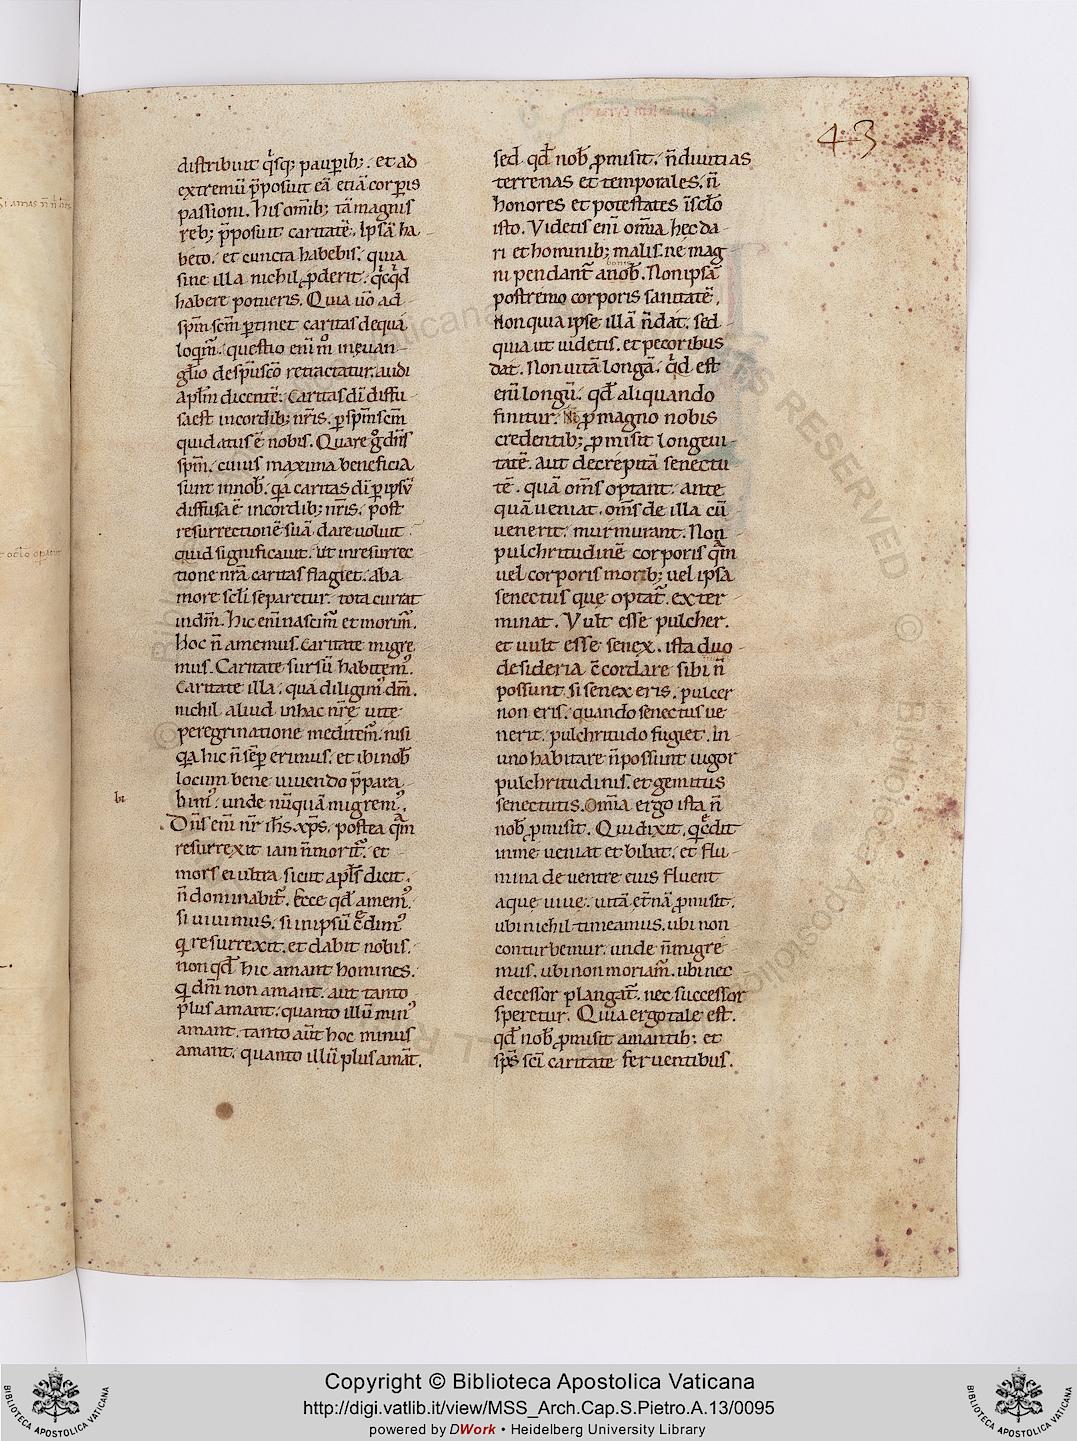 43
distribuit q̉sq; paup̲ib;. et ad
extremū p̄posuit eā etiā corp̲is
passioni. his om̄ib; tā magnis
reb; p̄posuit caritatē. Ipsā ha
beto. et cuncta habebis. quia
sine illa nichil ꝓderit. q̉cq̉d
habere potueris. Quia uō ad
sp̄m sc̄m p̲tinet caritas de qua
loq̉m̄. questio eni m̊ in euan
gl̄io de sp̄u sc̄o retractatur. audi
apl̄m dicentē. Caritas dī diffu
sa est in cordib; nr̄is. p̲ sp̄m sc̄m
qui datus ē nobis. Quare g̊ dn̄s
sp̄m. cuius maxima beneficia
sunt in nob̄. q̄a caritas dī p̲ ipsū
diffusa ē in cordib; nr̄is. post
resurrectionē suā dare uoluit
quid significauit. Ut in resurrec
tione nr̄a caritas flagiet. ab a
more scl̄i separetur. tota currat
in dm̄. Hic eni nascim̄ et morim̄.
hoc n̄ amemus. Caritate migre
mus. Caritate sursū habitem᾽.
Caritate illa. qua diligim᾽ dm̄.
nichil aliud in hac nr̄e uite
peregrinatione meditem᾽. nisi
q̄a hic n̄ sēp erimus. et ibi nob̄
locum bene uiuendo p̄para
bim᾽. unde nūquā migrem᾽.
bi
Dn̄s eni nr̄ ih̄s xp̄s. postea q̄m
resurrexit iam n̄ morit᾽. et
mors ei ultra sicut apl̄s dicit.
n̄ dominabit᾽. Ecce qd̄ amem᾽.
si uiuimus. si in ipsū c̄dim᾽
q̇ resurrexit. et dabit nobis.
non qd̄ hic amant homines.
q̇ dm̄ non amant. aut tanto
plus amant. quanto illū min᾽
amant. tanto aūt hoc minus
amant. quanto illū plus amāt.
sed qd̄ nob̄ ꝓmisit. n̄ diuitias
terrenas et temporales. n̄
honores et potestates ī scl̄o
isto. Videtis eni om̄ia hec da
ri et hominib; malis. ne mag
ni pendant᾽ a nob̄. Non ipsā
bonis
postremo corporis sanitatē.
Non quia ipse illā n̄ dat. sed
quia ut uidetis. et pecoribus
dat. Non uitā longā. q̉d est
eni longū. qd̄ aliquando
finitur. ꝓ magno nobis
credentib; ꝓmisit longeui
tatē. aut decrepitā senectu
tē. quā om̄s optant. ante
quā ueniat. om̄s de illa cū
uenerit. murmurant. Non
pulchritudinē corporis q̄m
uel corporis morb; uel ipsa
senectus que optat᾽. exter
minat. Vult esse pulcher.
et uult esse senex. ista duo
desideria c̄cordare sibi n̄
possunt. si senex eris. pulcer
non eris. quando senectus ue
nerit. pulchritudo fugiet. In
uno habitare n̄ possunt uigor
pulchritudinis. et gemitus
senectutis. Om̄ia ergo ista n̄
nob̄ ꝓmisit. Qui dixit. q̇ c̄dit
in me ueniat et bibat. et flu
mina de uentre eius fluent
aque uiue. uitā et̄nā ꝓmisit.
ubi nichil timeamus. ubi non
conturbemur. unde n̄ migre
mus. ubi non moriam᾽. ubi nec
decessor plangat᾽. nec successor
speretur. Quia ergo tale est.
qd̄ nob̄ ꝓmisit amantib; et
sp̄s sc̄i caritate feruentibus.
Copyright © Biblioteca Apostolica Vaticana
http://digi.vatlib.it/view/MSS_Arch.Cap.S.Pietro.A.13/0095
powered by DWork • Heidelberg University Library